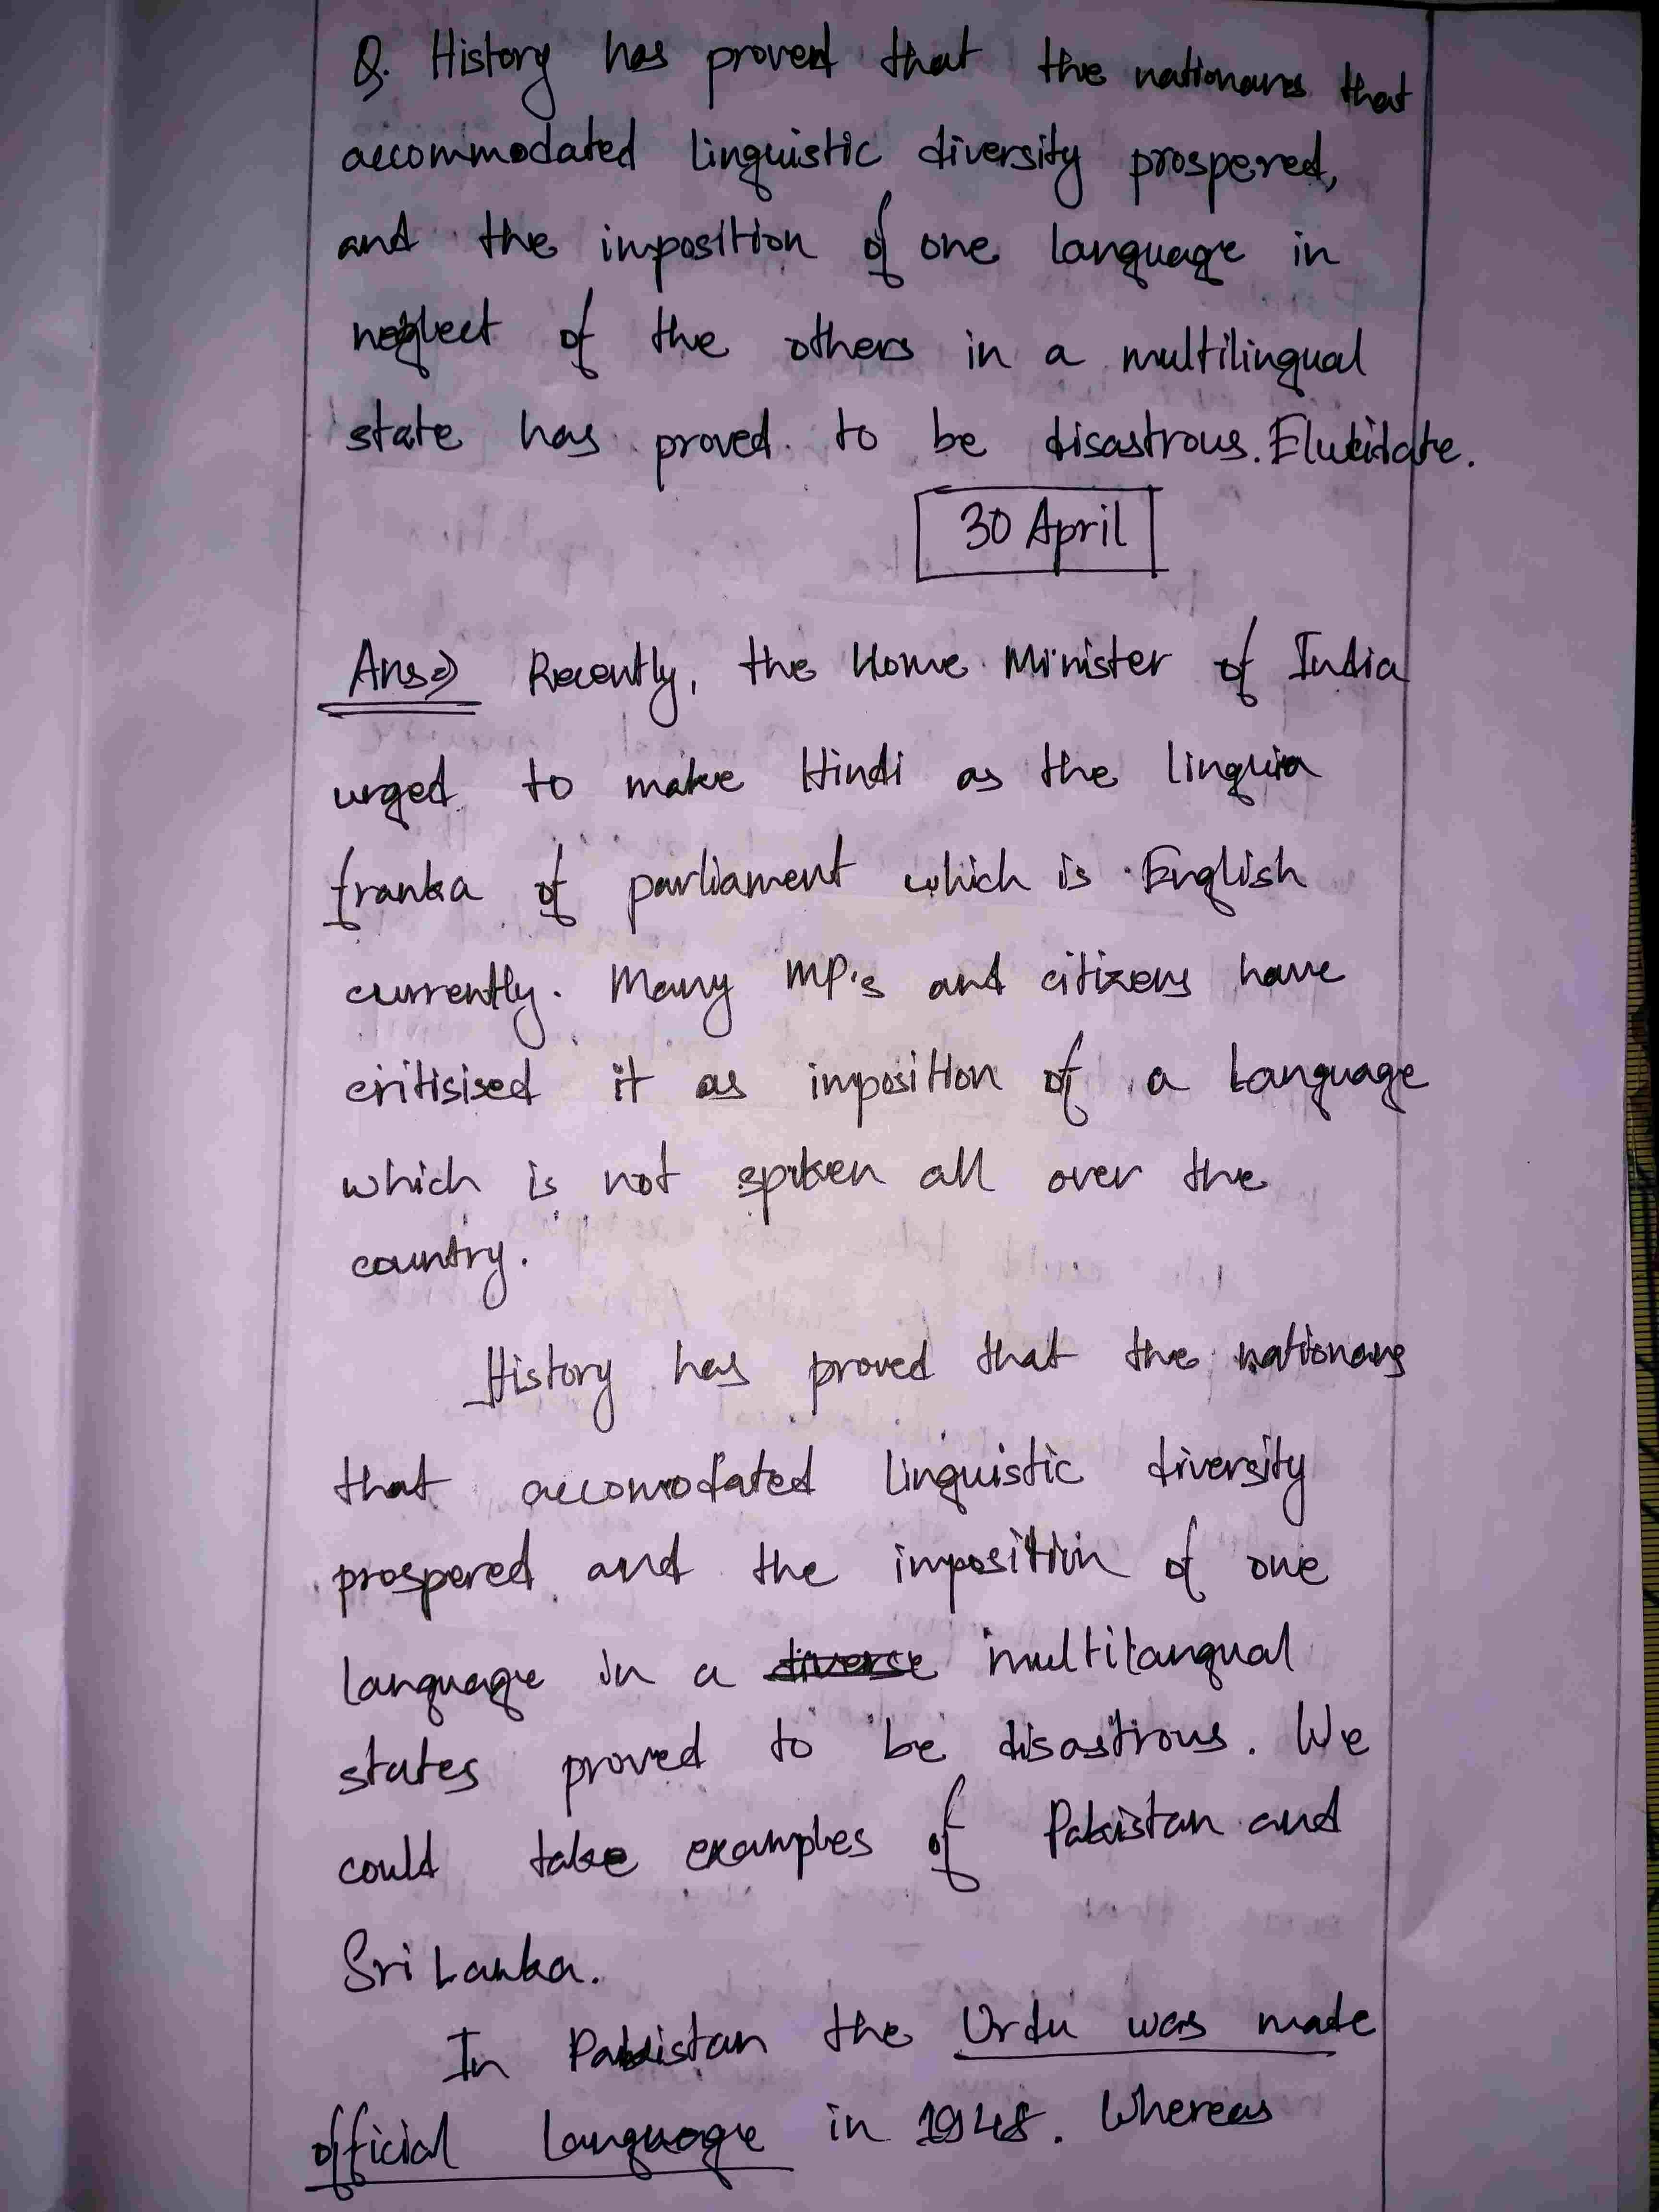 Q. History has proved that the nationans that
accommodated linguistic diversity prospered,
and the imposition of one language in
neglect of the others in a multilingual
state has proved to be disastrous. Elucidate.
30 April
Ans⇒ Recently, the Home Minister of India
urged to make Hindi as the linguia
franka of parliament which is English
currently. Many MP's and citizens have
critisised it as imposition of a language
which is not spoken all over the
country.
History has proved that the nationans
that accomodated linguistic diversity
prospered and the imposition of one
language in a diverse multilangual
states proved to be disastrous. We
could take examples of Pakistan and
Sri Lanka.
In Pakistan the Urdu was made
official language in 1948. Whereas